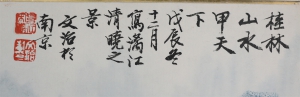 桂林
山水
甲天
下
戊辰冬
十二月
写漓江
清曉之
景
文治於
南京